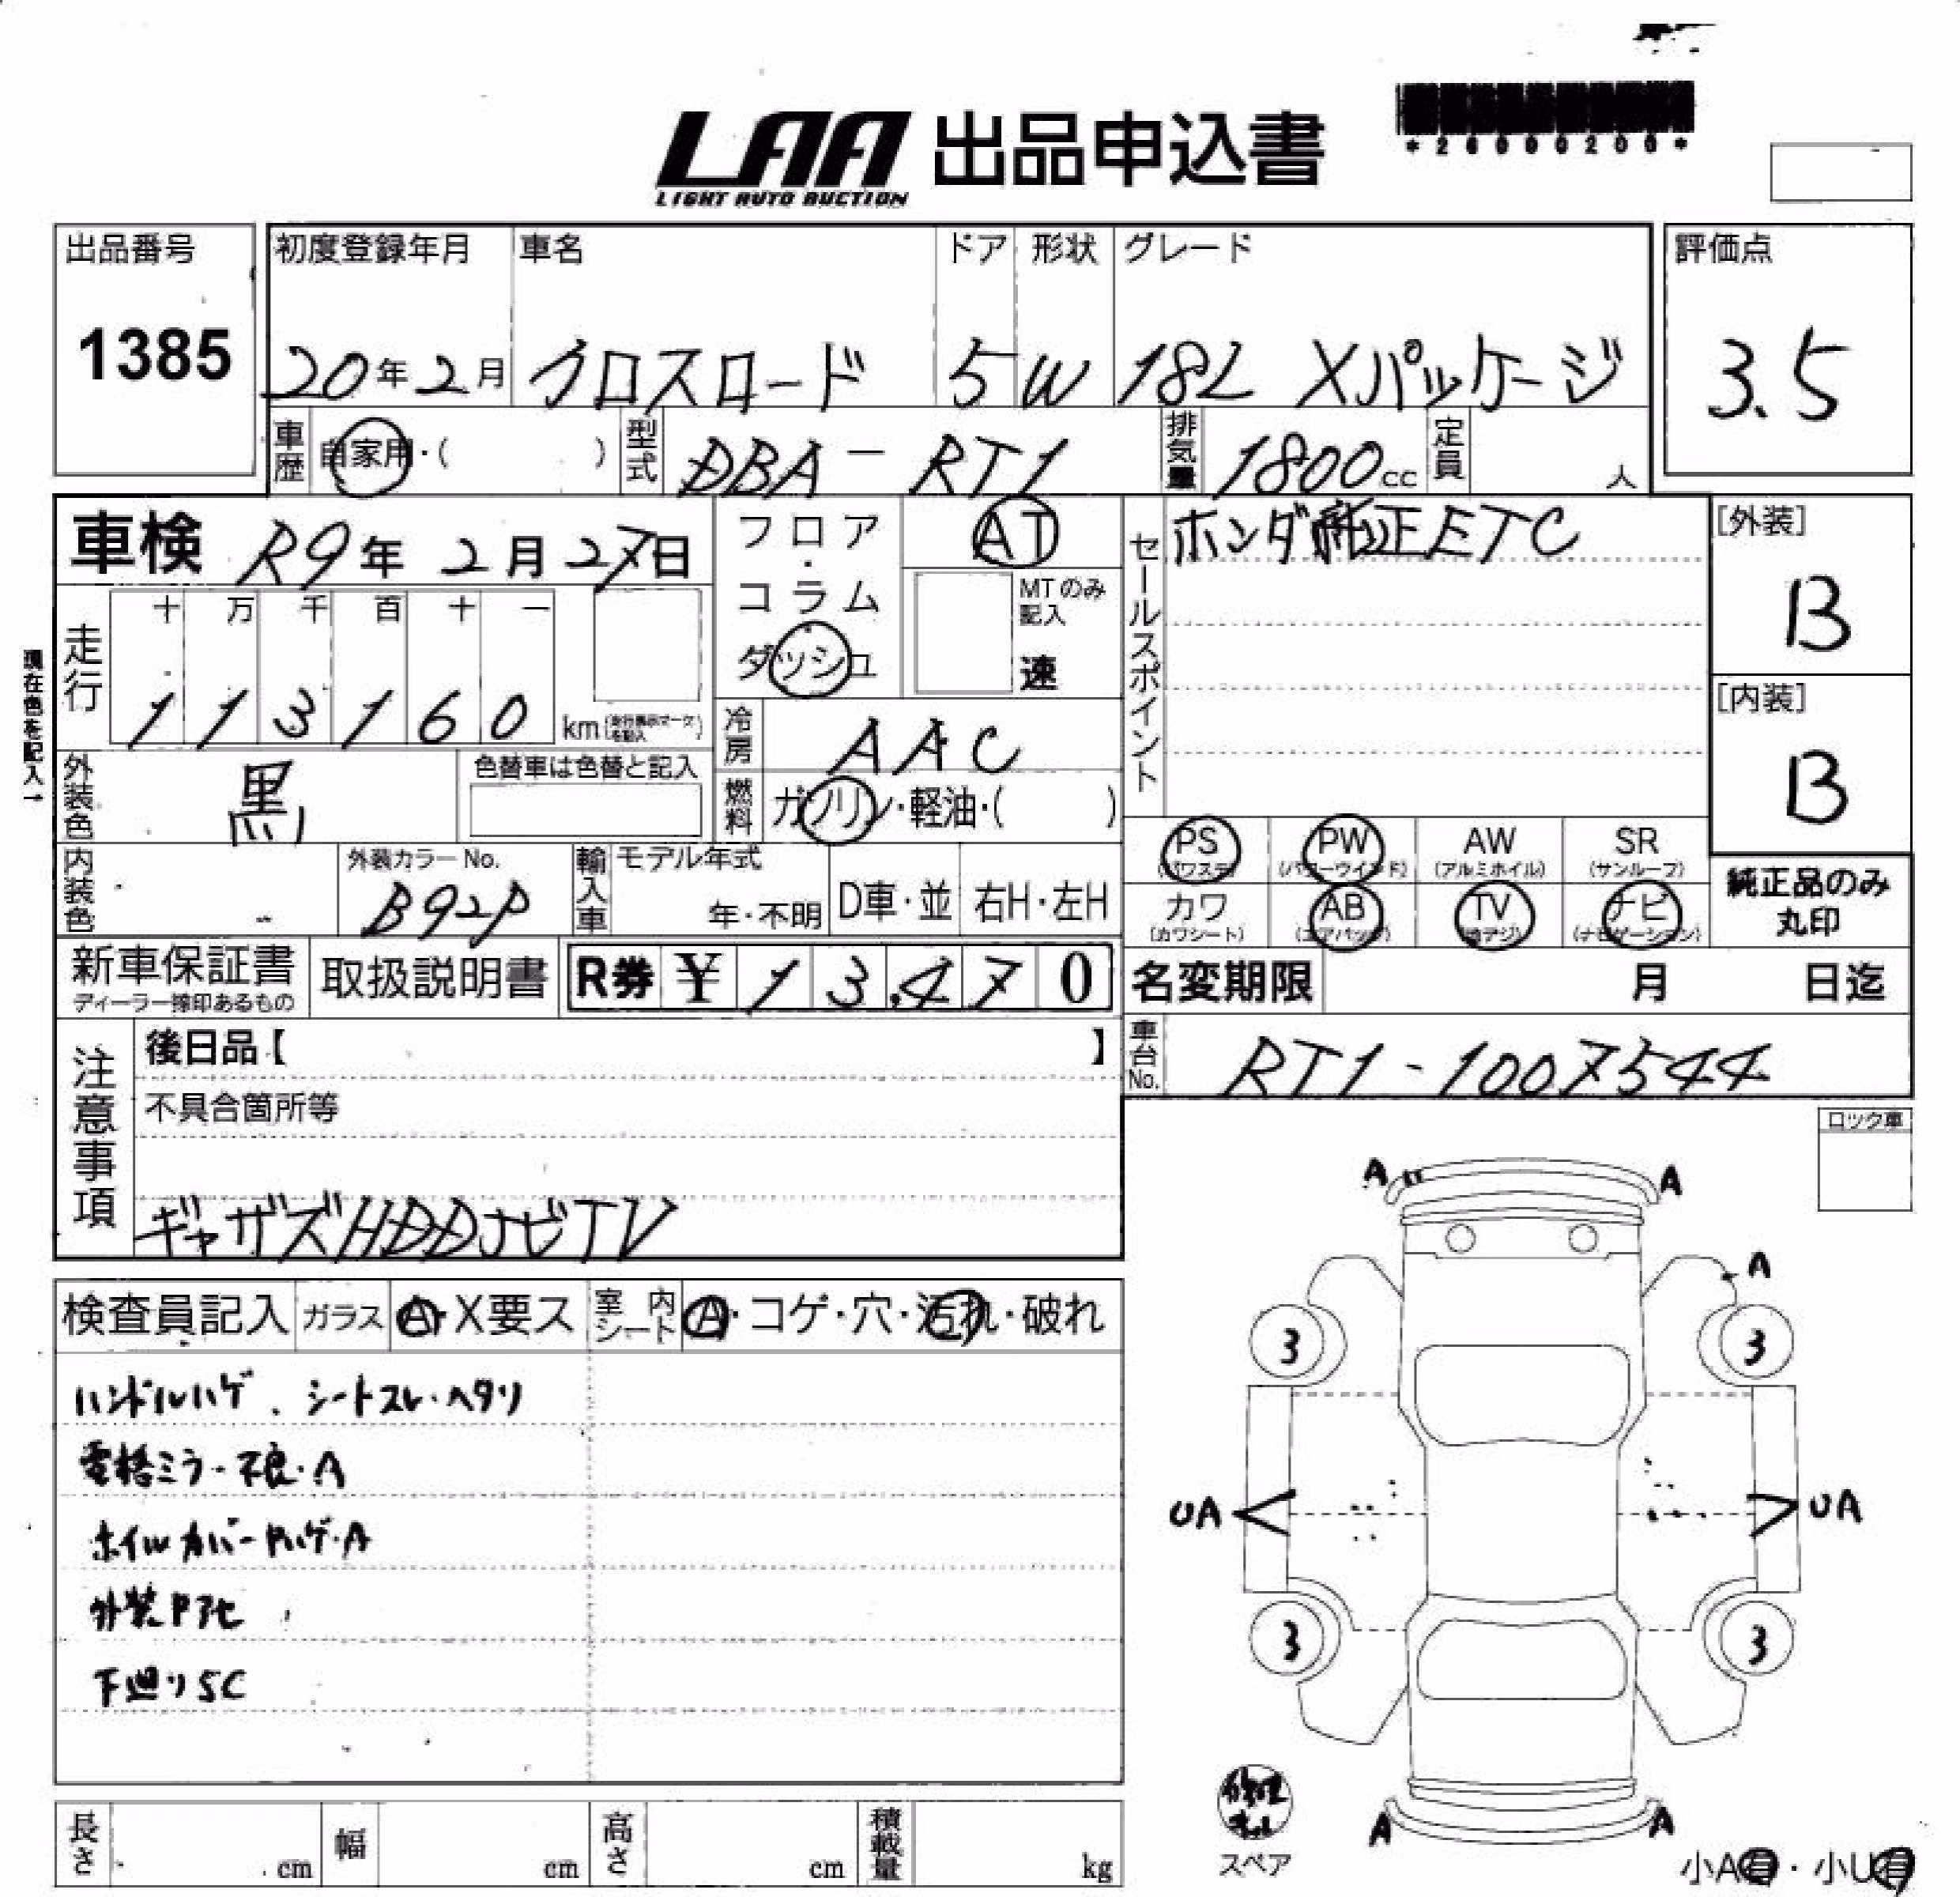 LAA 出品申込書
LIGHT AUTO AUCTION
*26000200*
出品番号
1385
初度登録年月 車名 ドア 形状 グレード
20年2月 クロスロード 5 W 18L Xパッケージ
評価点
3.5
車歴 自家用・( ) 型式 DBA-RT1 排気量 1800cc 定員 人
車検 R9年2月27日
フロア・コラム・ダッシュ
AT
MTのみ記入
速
セールスポイント ホンダ純正ETC
[外装]
B
[内装]
B
現在色を記入→
走行 十 万 千 百 十 一
1 1 3 1 6 0 km
冷房 AAC
燃料 ガソリン・軽油・( )
外装色 黒 色替車は色替と記入
PS (パワステ) PW (パワーウインド) AW (アルミホイル) SR (サンルーフ)
カワ (カワシート) AB (エアバッグ) TV (地デジ) ナビ (ナビゲーション)
純正品のみ丸印
内装色 外装カラーNo. B92P 輸入車 モデル年式 年・不明 D車・並 右H・左H
新車保証書 ディーラー捺印あるもの 取扱説明書 R券 ¥13,470
名変期限 月 日迄
車台No. RT1-1007544
注意事項
後日品【 】
不具合箇所等
ギャザズHDDナビTV
ロック車
検査員記入 ガラス A・X要ス 室内シート A・コゲ・穴・汚れ・破れ
ハンドルハゲ、シートスレ・ヘタリ
電格ミラー不良・A
ホイルカバーPハゲ・A
外装Pアセ
下廻りSC
A A
A
3 3
UA UA
3 3
A A
修理キット
スペア
小A有・小U有
長さ cm 幅 cm 高さ cm 積載量 kg